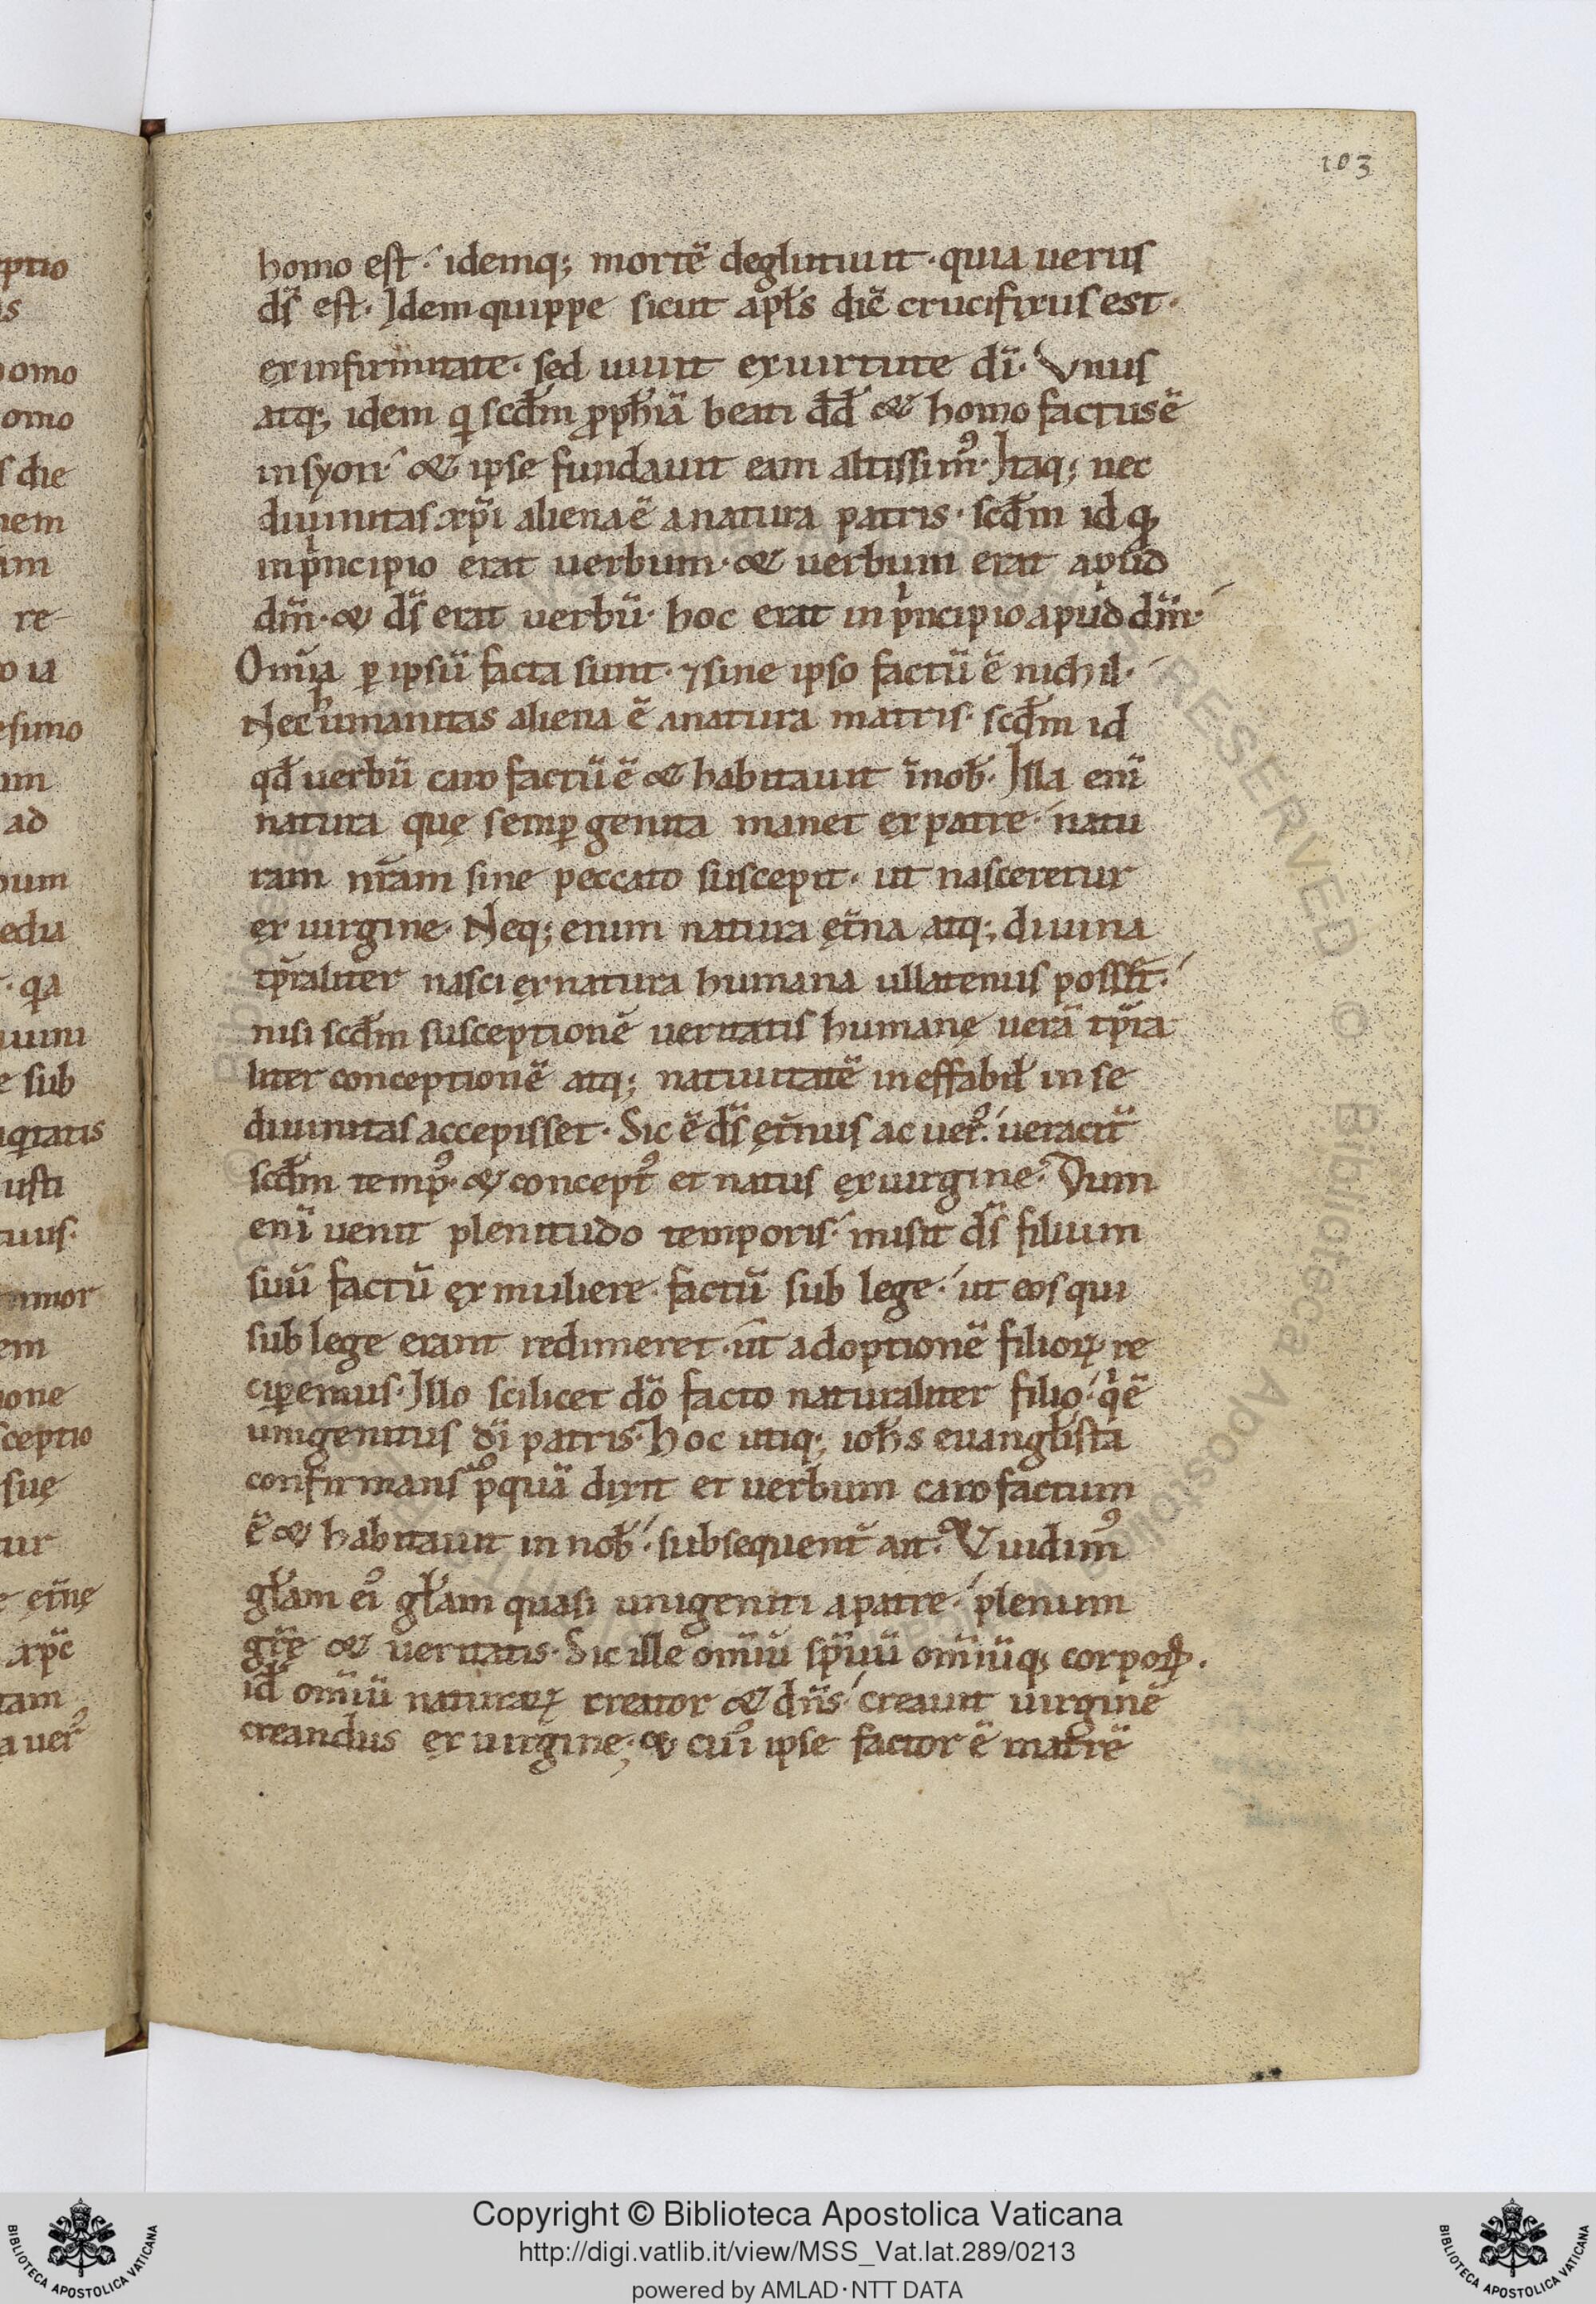 103
ptio
homo est· idemq; mortē deglutiuit· quia uerus
s
ds̄ est· Idem quippe sicut apƚs diē crucifixus est·
omo
ex infirmitate· sed uiuit ex uirtute dī· Vnus
omo
atq; idem qi scđm ꝓph̄iā beati dđ & homo factus ē
s die
in syon· & ipse fundauit eam altissimꝰ· Itaq; nec
nem
diuinitas xp̄i aliena ē a natura patris· scđm id qđ
um
in pⁱncipio erat uerbum· & uerbum erat apud
re
dm̄· & ds̄ erat uerbū· hoc erat in pⁱncipio apud dm̄·
o ia
Om̄ia ꝑ ipsū facta sunt· ⁊ sine ipso factū ē nichil·
esimo
Nec humanitas aliena ē a natura matris· scđm id
um
qđ uerbū caro factū ē & habitauit in nob̄· Illa enī
ad
natura quę semꝑ genita manet ex patre· natu
bum
ram nr̄am sine peccato suscepit· ut nasceretur
edia
ex uirgine· Neq; enim natura ęt̄na atq; diuina
· qa
tp̄raliter nasci ex natura humana ullatenus posset·
nisi scđm susceptionē ueritatis humanę uerā tp̄ra
e sub
liter conceptionē atq; natiuitatē ineffabiƚ in se
iqitatis
diuinitas accepisset· Sic ē ds̄ ęt̄nus ac uerꝰ· ueracit̄
iusti
scđm tempꝰ· & conceptꝰ et natus ex uirgine· Dum
tuus·
enī uenit plenitudo temporis· misit ds̄ filium
suū factū ex muliere· factū sub lege· ut eos qui
em
sub lege erant redimeret· ut adoptionē filioꝝ re
ione
ciꝑemus· Illo scilicet dō facto naturaliter filio· qⁱ ē
sceptio
unigenitus dī patris· hoc utiq; ioh̄s euangƚista
suę
confirmans pꝰquā dixit et uerbum caro factum
tur
ē & habitauit in nob̄· subsequent̄ ait· Et uidimꝰ
ęt̄nę
gƚam eiꝰ gƚam quasi unigeniti a patre· plenum
xp̄c
gr̄e & ueritatis· Sic ille om̄iū sp̄iuū om̄iūq; corpoꝝ·
tam
id̄ om̄iū naturaꝝ creator & dn̄s· creauit uirginē
a uerꝰ
creandus ex uirgine; & cuiꝰ ipse factor ē matrē
Copyright © Biblioteca Apostolica Vaticana
http://digi.vatlib.it/view/MSS_Vat.lat.289/0213
powered by AMLAD·NTT DATA
BIBLIOTECA APOSTOLICA VATICANA
BIBLIOTECA APOSTOLICA VATICANA